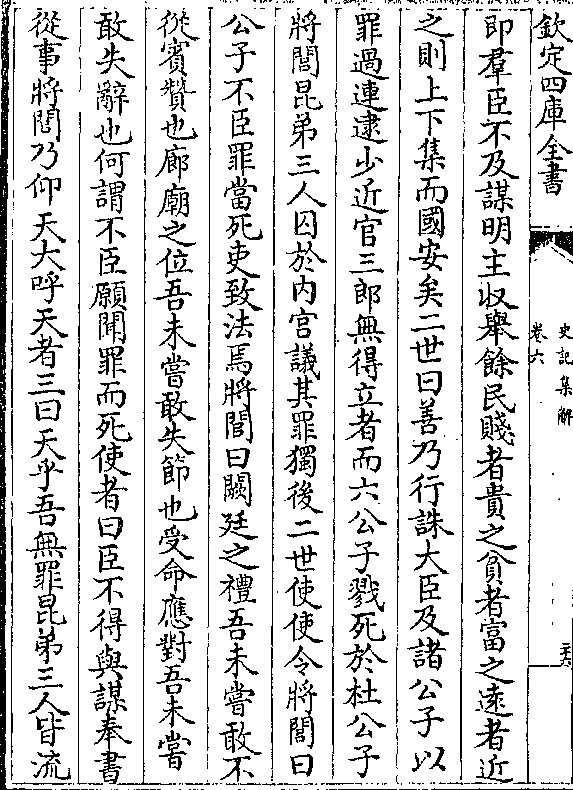 欽定四庫全書
史記集解
卷六
即羣臣不及謀明主收舉餘民賤者貴之貧者富之遠者近
之則上下集而國安矣二世曰善乃行誅大臣及諸公子以
罪過連逮少近官三郎無得立者而六公子戮死於杜公子
將閭昆弟三人囚於内宫議其罪獨後二世使使令將閭曰
公子不臣罪當死吏致法焉將閭曰闕廷之禮吾未嘗敢不
從賓贊也廊廟之位吾未嘗敢失節也受命應對吾未嘗
敢失辭也何謂不臣願聞罪而死使者曰臣不得與謀奉書
從事將閭乃仰天大呼天者三曰天乎吾無罪昆弟三人皆流